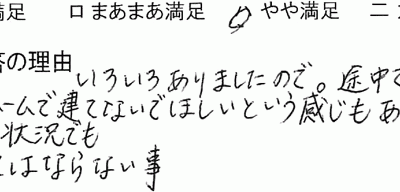 満足 ロまあまあ満足 やや満足 ニ
答の理由
いろいろありましたので。途中で
ームで建てないでほしいという感じもあ
状況でも
はならない事